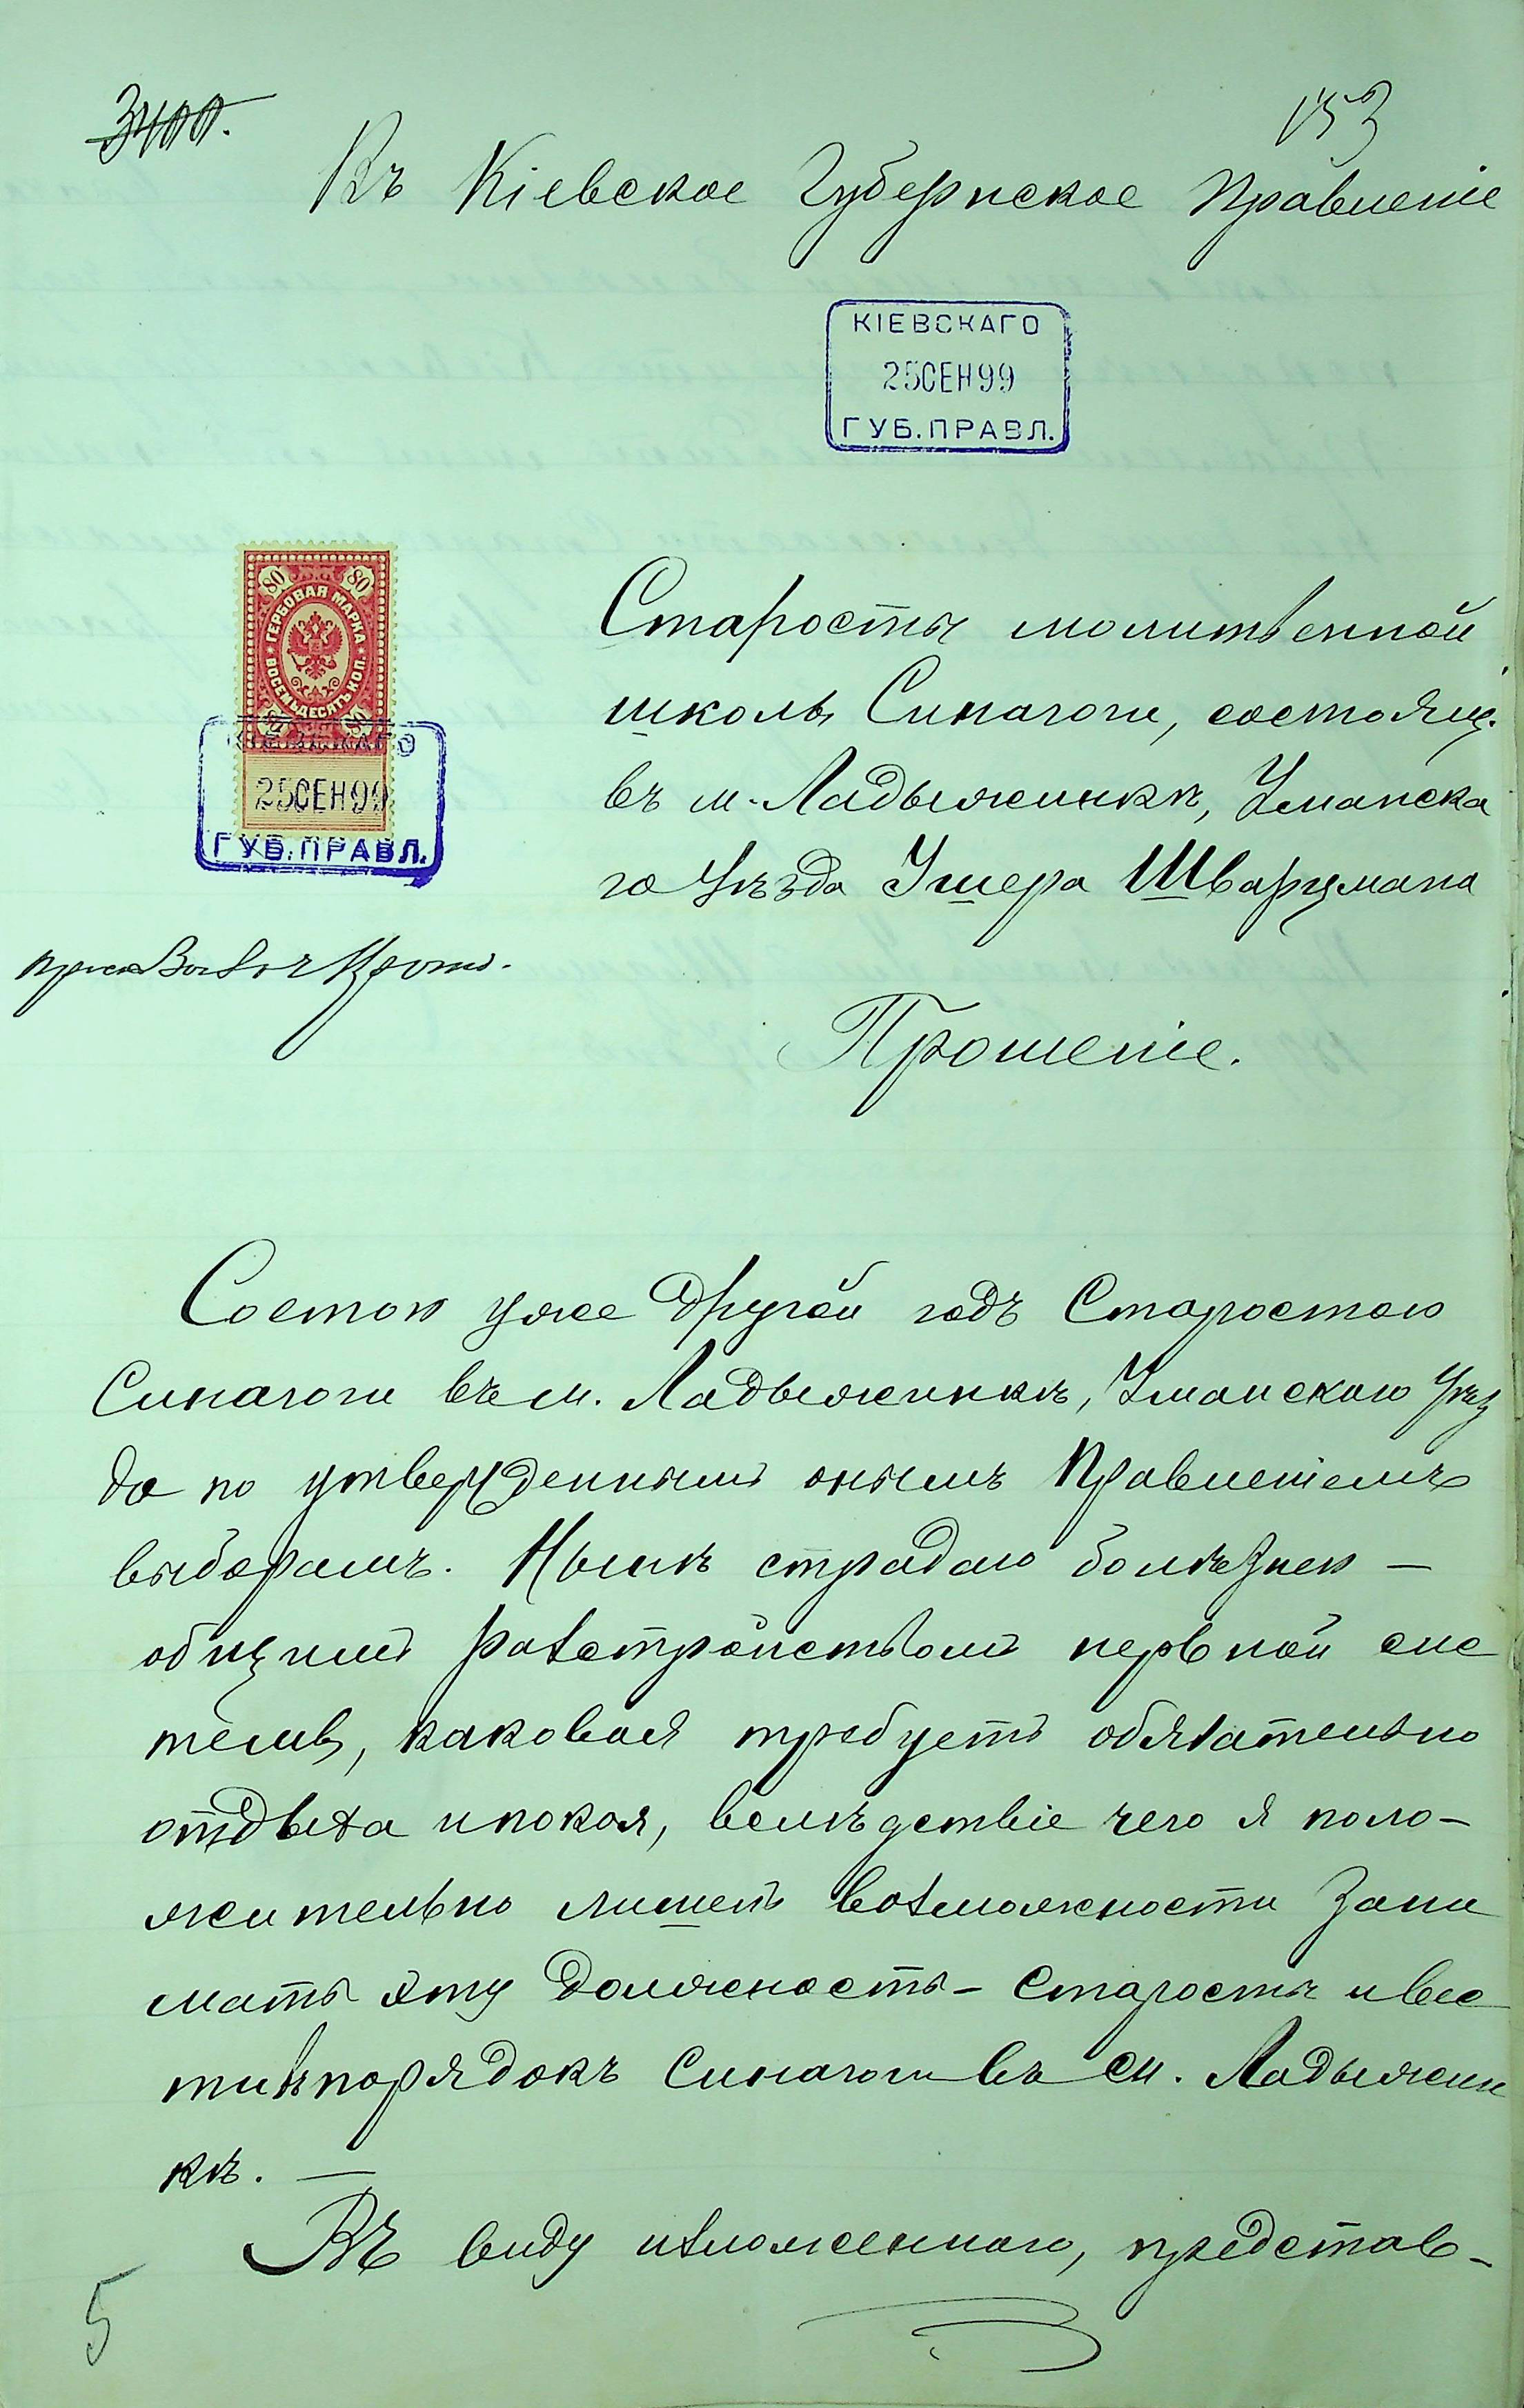 3400.
153
Въ Кіевское Губернское Правленіе
КІЕВСКАГО
25 СЕН 99
ГУБ. ПРАВЛ.
80 80
ГЕРБОВАЯ МАРКА
ВОСЕМЬДЕСЯТЪ КОП.
КІЕВСКАГО
25 СЕН 99
ГУБ. ПРАВЛ.
Старосты молитвенной
школы Синагоги, состоящ.
въ м. Ладыжинкѣ, Уманска
го уѣзда Ушера Шварцмана
Прошеніе.
Состою уже другой годъ Старостою
Синагоги въ м. Ладыжинкѣ, Уманскаго уѣз
да по утвержденнымъ онымъ Правленіемъ
выборамъ. Нынѣ страдаю болѣзнею —
общимъ разстройствомъ нервной сис
темы, каковая требуетъ обязательно
отдыха и покоя, велѣдствіе чего я поло-
жительно лишенъ возможности зани
мать эту должность - Старосты и вес
ти порядокъ Синагоги въ м. Ладыжин
кѣ. —
Въ виду изложеннаго, представ-
5